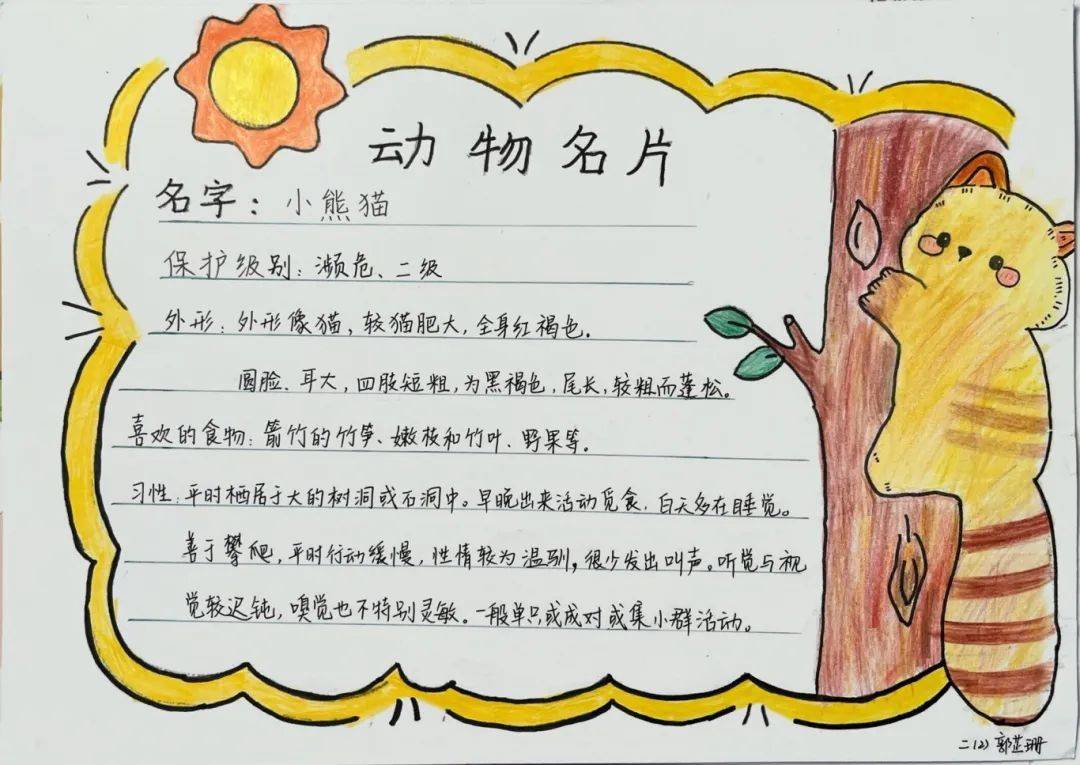 动物名片
名字：小熊猫
保护级别：濒危、二级
外形：外形像猫，较猫肥大，全身红褐色。
圆脸、耳大，四肢短粗，为黑褐色，尾长，较粗而蓬松。
喜欢的食物：箭竹的竹笋、嫩枝和竹叶、野果等。
习性：平时栖居于大的树洞或石洞中。早晚出来活动觅食，白天多在睡觉。
善于攀爬，平时行动缓慢，性情较为温驯，很少发出叫声。听觉与视
觉较迟钝，嗅觉也不特别灵敏。一般单只或成对或集小群活动。
二(2) 郭芷珊